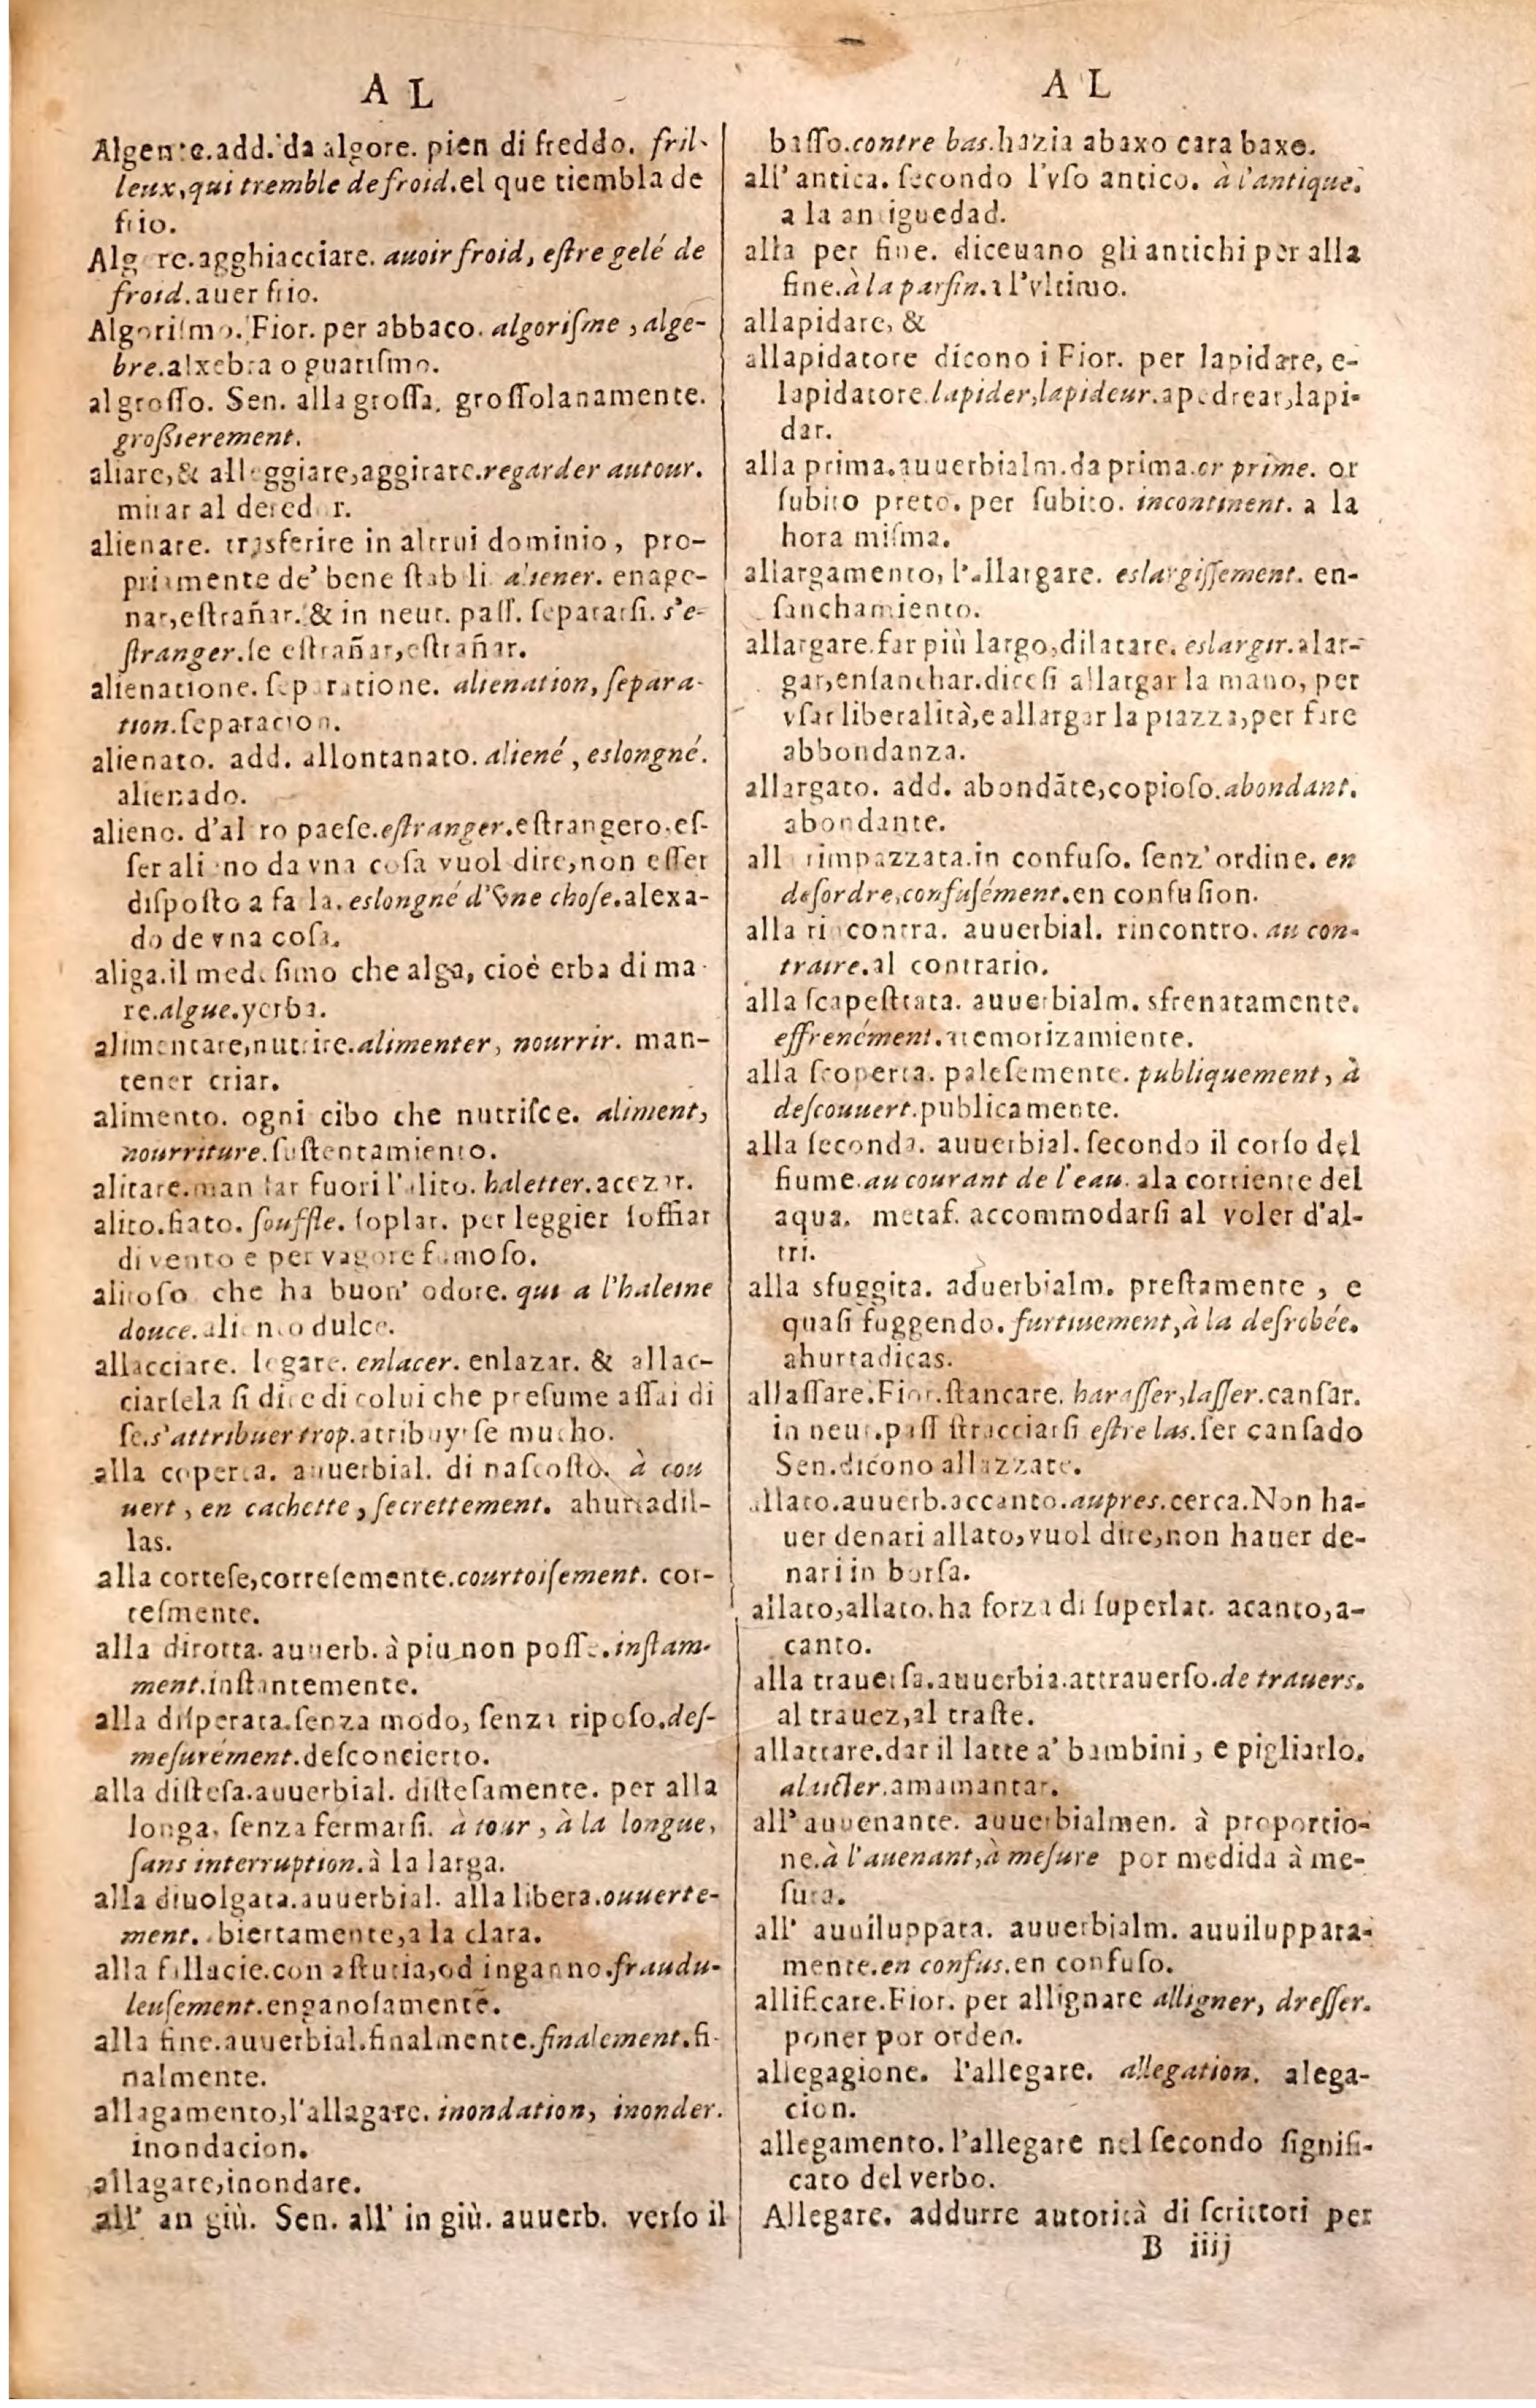 A L
Algente.add. da algore. pien di freddo. fril-
leux, qui tremble de froid. el que tiembla de
frio.
Algere. agghiacciare. auoir froid, eſtre gelé de
froid. auer frio.
Algoriſmo. Fior. per abbaco. algoriſme, alge-
bre. alxebra o guariſmo.
al groſſo. Sen. alla groſſa, groſſolanamente.
großierement.
aliare, & alleggiare, aggirare. regarder autour.
mirar al derredor.
alienare. trasferire in altrui dominio, pro-
priamente de' bene ſtabili. aliener. enage-
nar, eſtrañar. & in neut. paſſ. ſepararſi. s'e-
ſtranger. ſe eſtrañar, eſtrañar.
alienatione. ſeparatione. alienation, ſepara-
tion. ſeparacion.
alienato. add. allontanato. aliené, eslongné.
alienado.
alieno. d'altro paeſe. eſtranger. eſtrangero, eſ-
ſer alieno da vna coſa vuol dire, non eſſer
diſpoſto a farla. eslongné d'vne choſe. alexa-
do de vna coſa.
aliga. il medeſimo che alga, cioè erba di ma-
re. algue. yerba.
alimentare, nutrire. alimenter, nourrir. man-
tener criar.
alimento. ogni cibo che nutriſce. aliment,
nourriture. ſuſtentamiento.
alitare. mandar fuori l'alito. haletter. acezar.
alito. fiato. ſouffle. ſoplar. per leggier ſoffiar
di vento e per vagore fumoſo.
alitoſo che ha buon' odore. qui a l'haleine
douce. aliento dulce.
allacciare. legare. enlacer. enlazar. & allac-
ciarſela ſi dice di colui che preſume aſſai di
ſe. s'attribuer trop. atribuyrſe mucho.
alla coperta. auuerbial. di naſcoſto. à cou
uert, en cachette, ſecrettement. ahurtadil-
las.
alla corteſe, correſemente. courtoiſement. cor-
teſmente.
alla dirotta. auuerb. à piu non poſſe. inſtam-
ment. inſtantemente.
alla diſperata. ſenza modo, ſenza ripoſo. deſ-
meſurément. deſconcierto.
alla diſteſa. auuerbial. diſteſamente. per alla
longa, ſenza fermarſi. à tour, à la longue,
ſans interruption. à la larga.
alla diuolgata. auuerbial. alla libera. ouuerte-
ment. abiertamente, a la clara.
alla fallacie. con aſtutia, od inganno. fraudu-
leuſement. enganoſamente.
alla fine. auuerbial. finalmente. finalement. fi-
nalmente.
allagamento, l'allagare. inondation, inonder.
inondacion.
allagare, inondare.
all' an giù. Sen. all' in giù. auuerb. verſo il
A L
baſſo. contre bas. hazia abaxo cara baxo.
all' antica. ſecondo l'vſo antico. à l'antique.
a la antiguedad.
alla per fine. diceuano gli antichi per alla
fine. à la parfin. a l'vltimo.
allapidare, &
allapidatore dicono i Fior. per lapidare, e-
lapidatore. lapider, lapideur. apedrear, lapi-
dar.
alla prima. auuerbialm. da prima. or prime. or
ſubito preto. per ſubito. incontinent. a la
hora miſma.
allargamento, l'allargare. eslargiſſement. en-
ſanchamiento.
allargare. far più largo, dilatare. eslargir. alar-
gar, enſanchar. diceſi allargar la mano, per
vſar liberalità, e allargar la piazza, per fare
abbondanza.
allargato. add. abondãte, copioſo. abondant.
abondante.
alla rimpazzata. in confuſo. ſenz' ordine. en
deſordre, confuſément. en confuſion.
alla rincontra. auuerbial. rincontro. au con-
traire. al contrario.
alla ſcapeſtrata. auuerbialm. sfrenatamente.
effrenément. atemorizamiente.
alla ſcoperta. paleſemente. publiquement, à
deſcouuert. publicamente.
alla ſeconda. auuerbial. ſecondo il corſo del
fiume. au courant de l'eau. ala corriente del
aqua. metaf. accommodarſi al voler d'al-
tri.
alla sfuggita. aduerbialm. preſtamente, e
quaſi fuggendo. furtiuement, à la deſrobée.
ahurtadicas.
allaſſare. Fior. ſtancare. haraſſer, laſſer. canſar.
in neut. paſſ ſtracciarſi eſtre las. ſer canſado
Sen. dicono allazzate.
allato. auuerb. accanto. aupres. cerca. Non ha-
uer denari allato, vuol dire, non hauer de-
nari in borſa.
allato, allato. ha forza di ſuperlat. acanto, a-
canto.
alla trauerſa. auuerbia. attrauerſo. de trauers.
al trauez, al traſte.
allattare. dar il latte a' bambini, e pigliarlo.
alaicter. amamantar.
all' auuenante. auuerbialmen. à proportio-
ne. à l'auenant, à meſure por medida à me-
ſura.
all' auuiluppata. auuerbialm. auuiluppata-
mente. en confus. en confuſo.
allificare. Fior. per allignare alligner, dreſſer.
poner por orden.
allegagione. l'allegare. allegation. alega-
cion.
allegamento. l'allegare nel ſecondo ſignifi-
cato del verbo.
Allegare. addurre autorità di ſcrittori per
B iiij